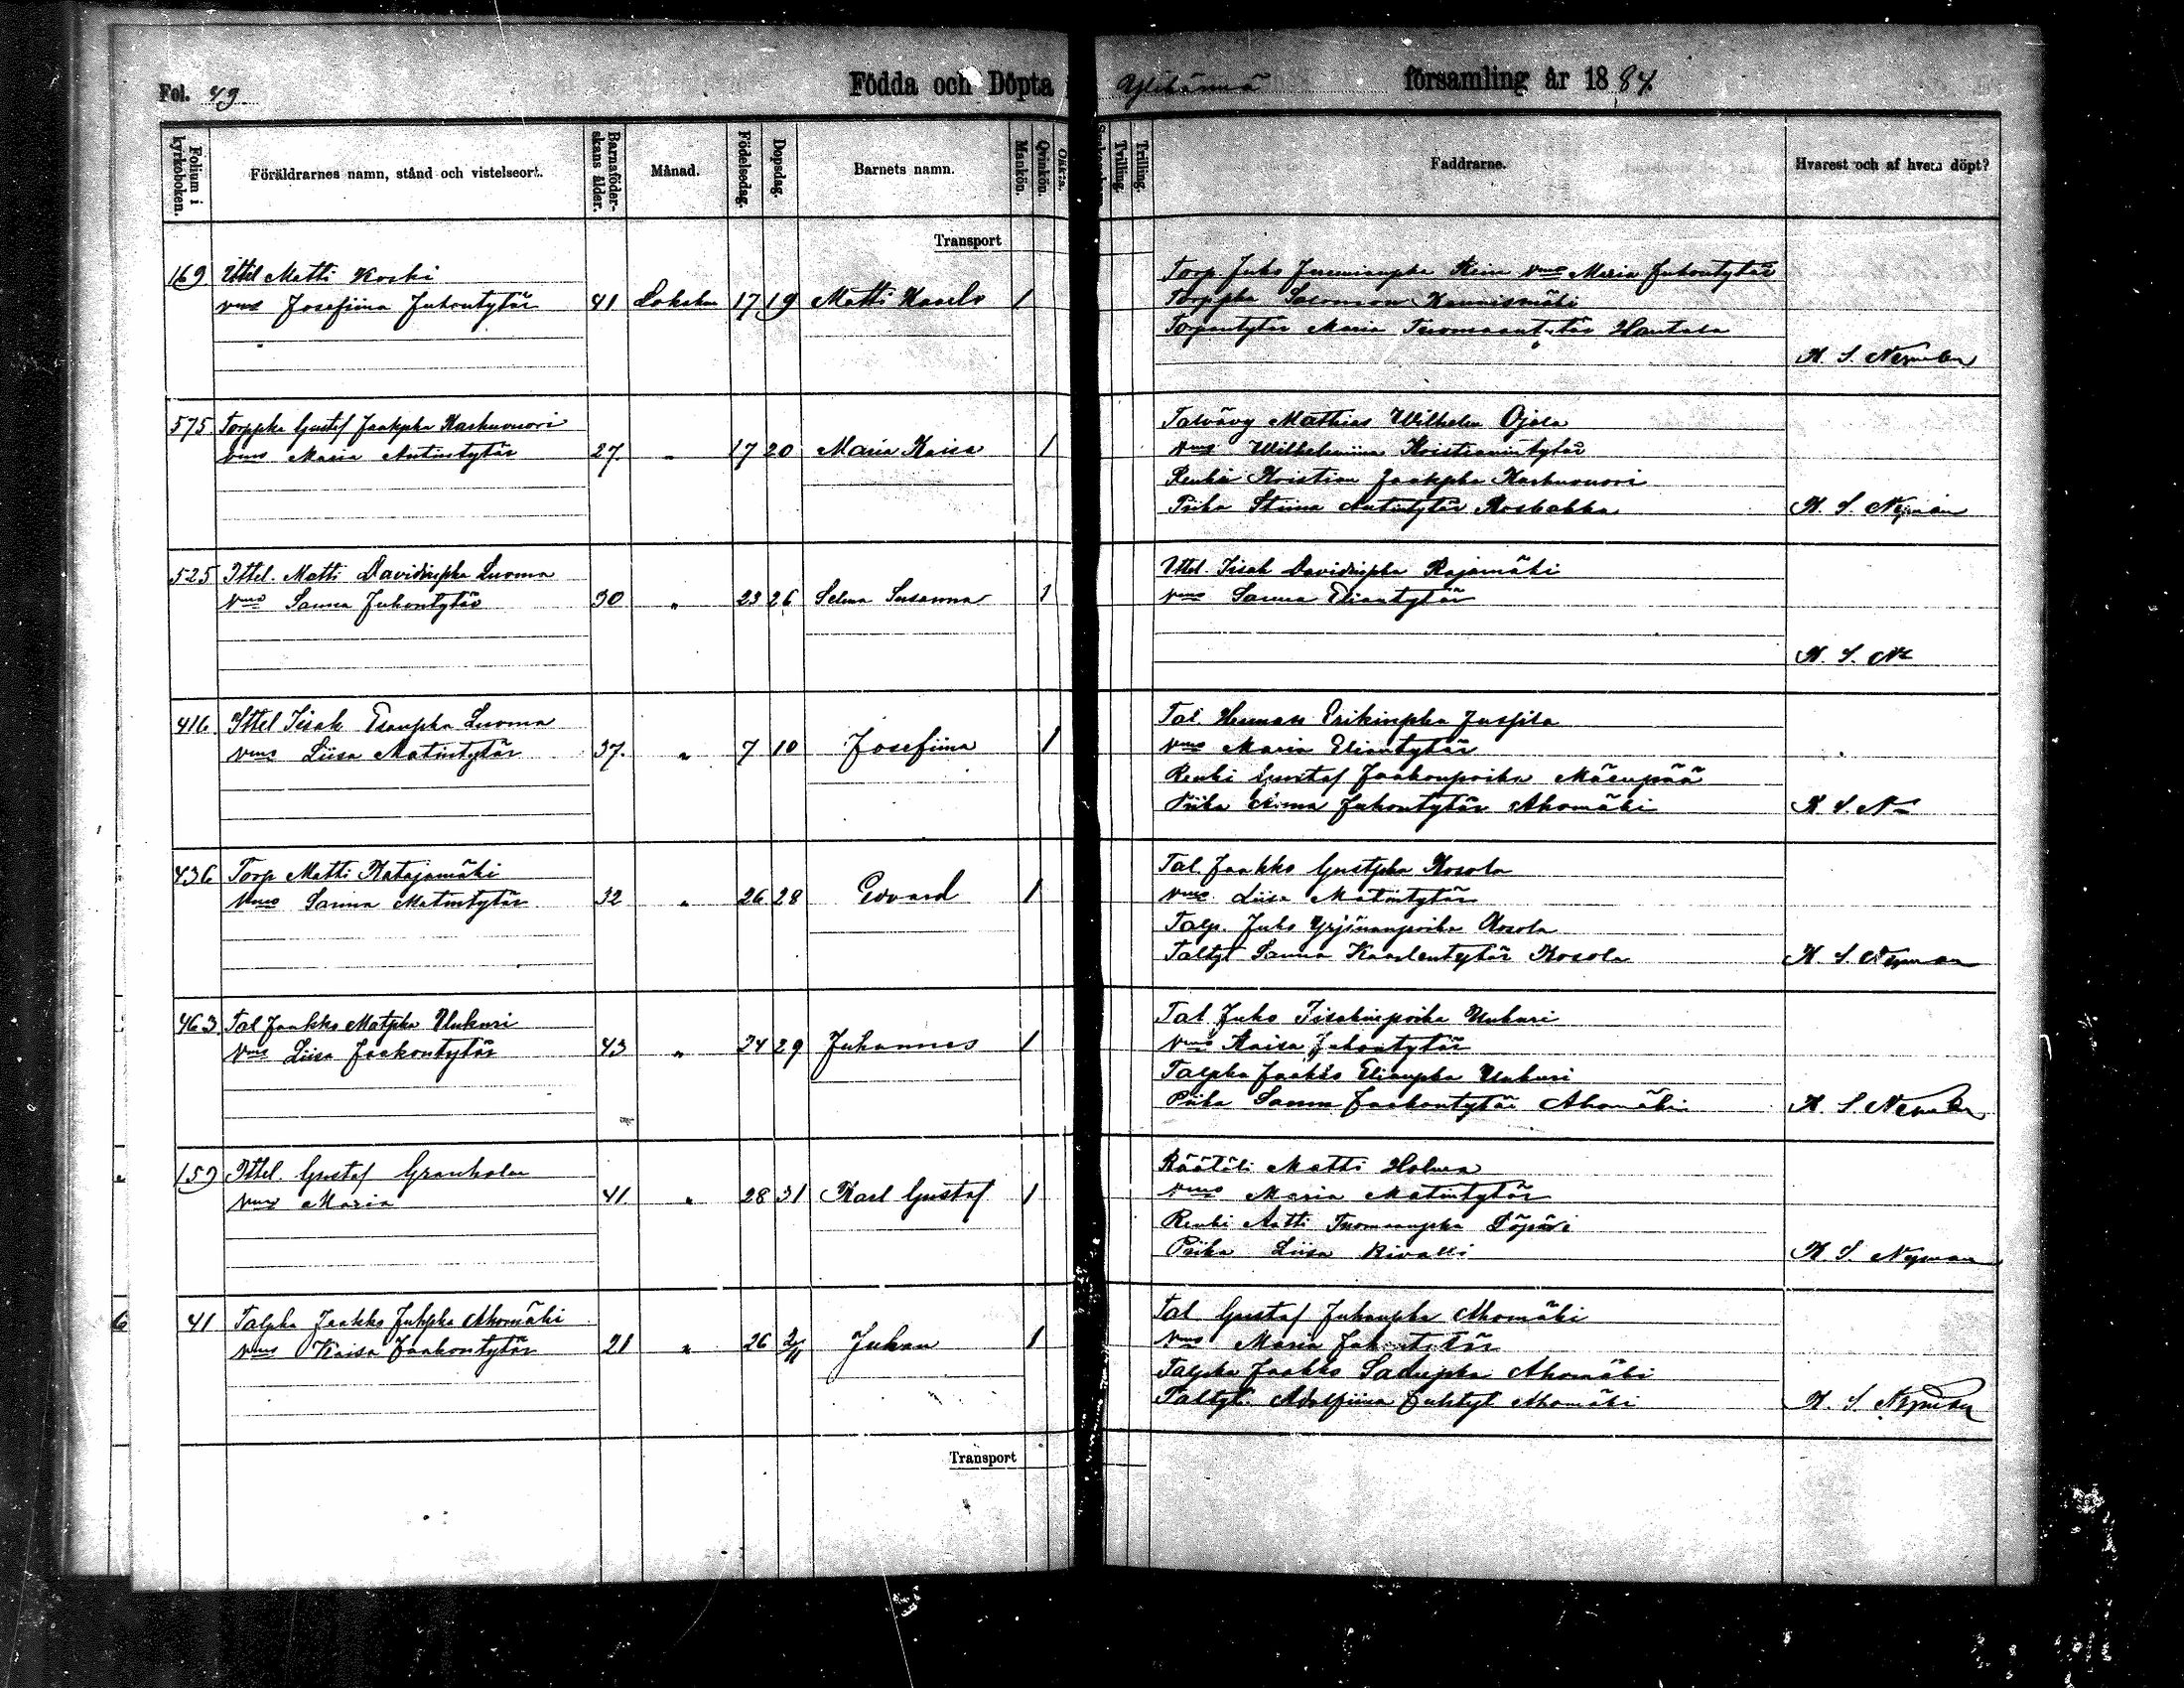 Fol. 49
Födda och Döpta
Ylihärmä församling år 1884.
Folium i kyrkoboken.
Föräldrarnes namn, stånd och vistelseort.
Barnaföderskans ålder.
Månad.
Födelsedag.
Dopsdag.
Barnets namn.
Mankön.
Qvinkön.
Trilling.
Trilling.
Faddrarne.
Hvarest och af hvem döpt?
Transport
169 Ittel Matti Koski
vms Josefiina Juhontytär 41 Lokakuu 17 19 Matti Kaarlo 1
Torp. Juho vms Maria Juhontytär
Torppka Salomon
Torpantytär Maria Tuomaantytär Hantala
K. S. Nyman
575 Torppka Gustaf Jaakpka Karhuvuori
vms Maria Antintytär 27. " 17 20 Maria Kaisa 1
Talvävy Mathias Wilhelm Ojala
vms Wilhelmiina Kristianintytär
Renki Kristian Jaakpka Karhuvuori
Piika Stiina Antintytär
K. S. Nyman
525 Ittel. Matti Davidinpka Luoma
vms Sanna Juhontytär 30 " 23 26 Selma Susanna 1
Ittel. Iisak Davidinpka Rajamäki
vms Sanna Eliantytär
K. S. N
416 Ittel Iisak Esaupka Luoma
vms Liisa Matintytär 37. " 7 10 Josefiina 1
Tal. Herman Erikinpka Jussila
vms Maria Eliantytär
Renki Gustaf Jaakonpoika Mäenpää
Piika Juhontytär Ahomäki
K. S. N
436 Torp Matti Katajamäki
vms Sanna Matintytär 32 " 26 28 Edvard 1
Tal. Jaakko Gustpka Kosola
vms Liisa Matintytär
Talp. Juho Yrjönanpoika Kosola
Taltyt Sanna Kaarlentytär Kosola
K. S. Nyman
463 Tal Jaakko Matpka Unkuri
vms Liisa Jaakontytär 43 " 24 29 Juhannes 1
Tal Juho Iisakinpoika Unkuri
vms Kaisa Juhontytär
Talpka Jaakko Elianpka Unkuri
Piika Sanna Jaakontytär Ahomäki
K. S. Nyman
159 Ittel. Gustaf Granholm
vms Maria 41 " 28 31 Karl Gustaf 1
Räätäli Matti Holma
vms Maria Matintytär
Renki Antti Tuomaanpka
Piika Liisa Kivalli
K. S. Nyman
41 Talpka Jaakko Juhpka Ahomäki
vms Kaisa Jaakontytär 21 " 26 2/11 Juhan 1
Tal Gustaf Juhanpka Ahomäki
vms Maria
Talpka Jaakko Ahomäki
Taltyt. Adolfiina Juhtyt Ahomäki
K. S. Nyman
Transport